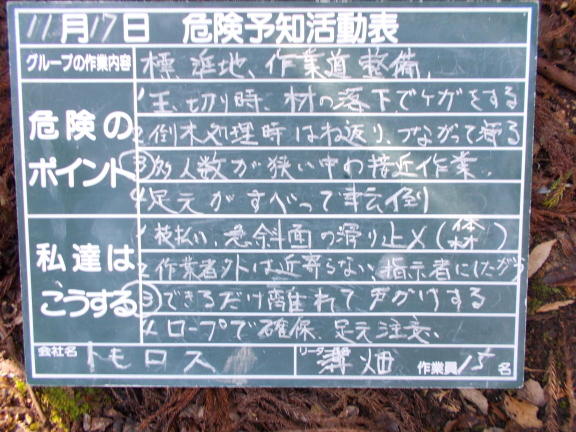 11月17日 危険予知活動表
グループの作業内容 標準地、作業道整備
危険のポイント
1 玉切り時、材の落下でケガをする
2 倒木処理時はね返り、つながって滑る
③ 多人数が狭い中の接近作業
4 足元がすべって転倒
私達はこうする
1 枝払い、急斜面の滑り止メ(
2 作業者外は近寄らない、指示者にしたがう
③ できるだけ離れて声がけする
4 ロープで確保、足元注意、
会社名 トモロス リーダー 溝畑 作業員 15名